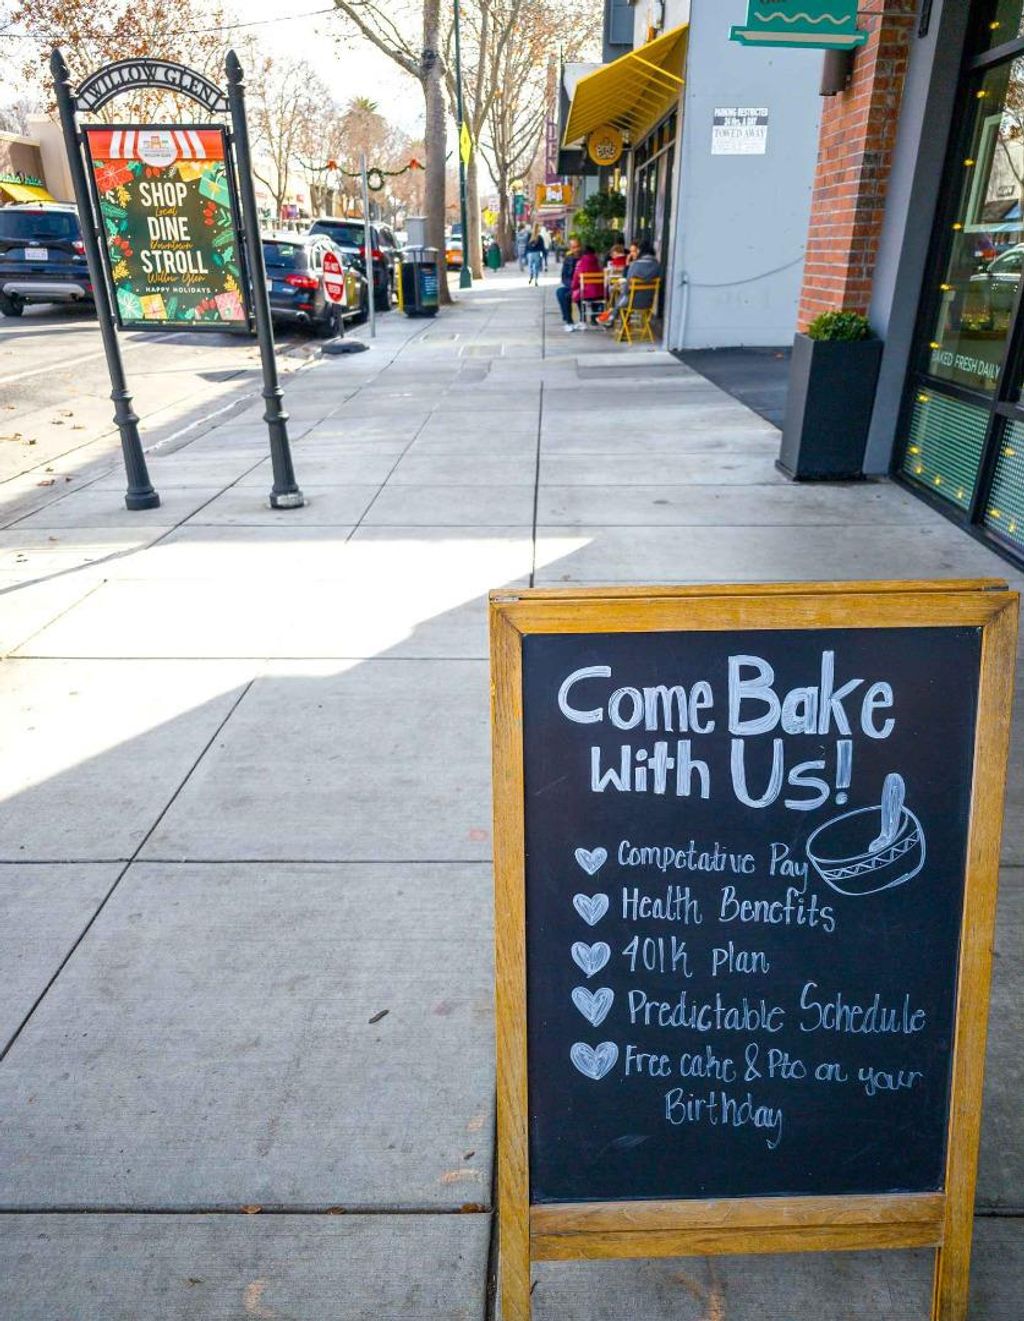 WILLOW GLEN
WILLOW GLEN
SHOP
Local
DINE
Downtown
STROLL
Willow Glen
HAPPY HOLIDAYS
DO NOT
ENTER
PARKING RESTRICTED
TOWED AWAY
BAKED FRESH DAILY
Come Bake
With Us!
Competative Pay
Health Benefits
401K plan
Predictable Schedule
Free cake & Pto on your
Birthday